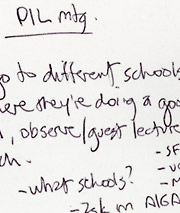 PIL mtg.
go to different schools
here they're doing a goo
, observe/guest lecture
ch.
- SF
- what schools?
- M
- Ask m AIGA